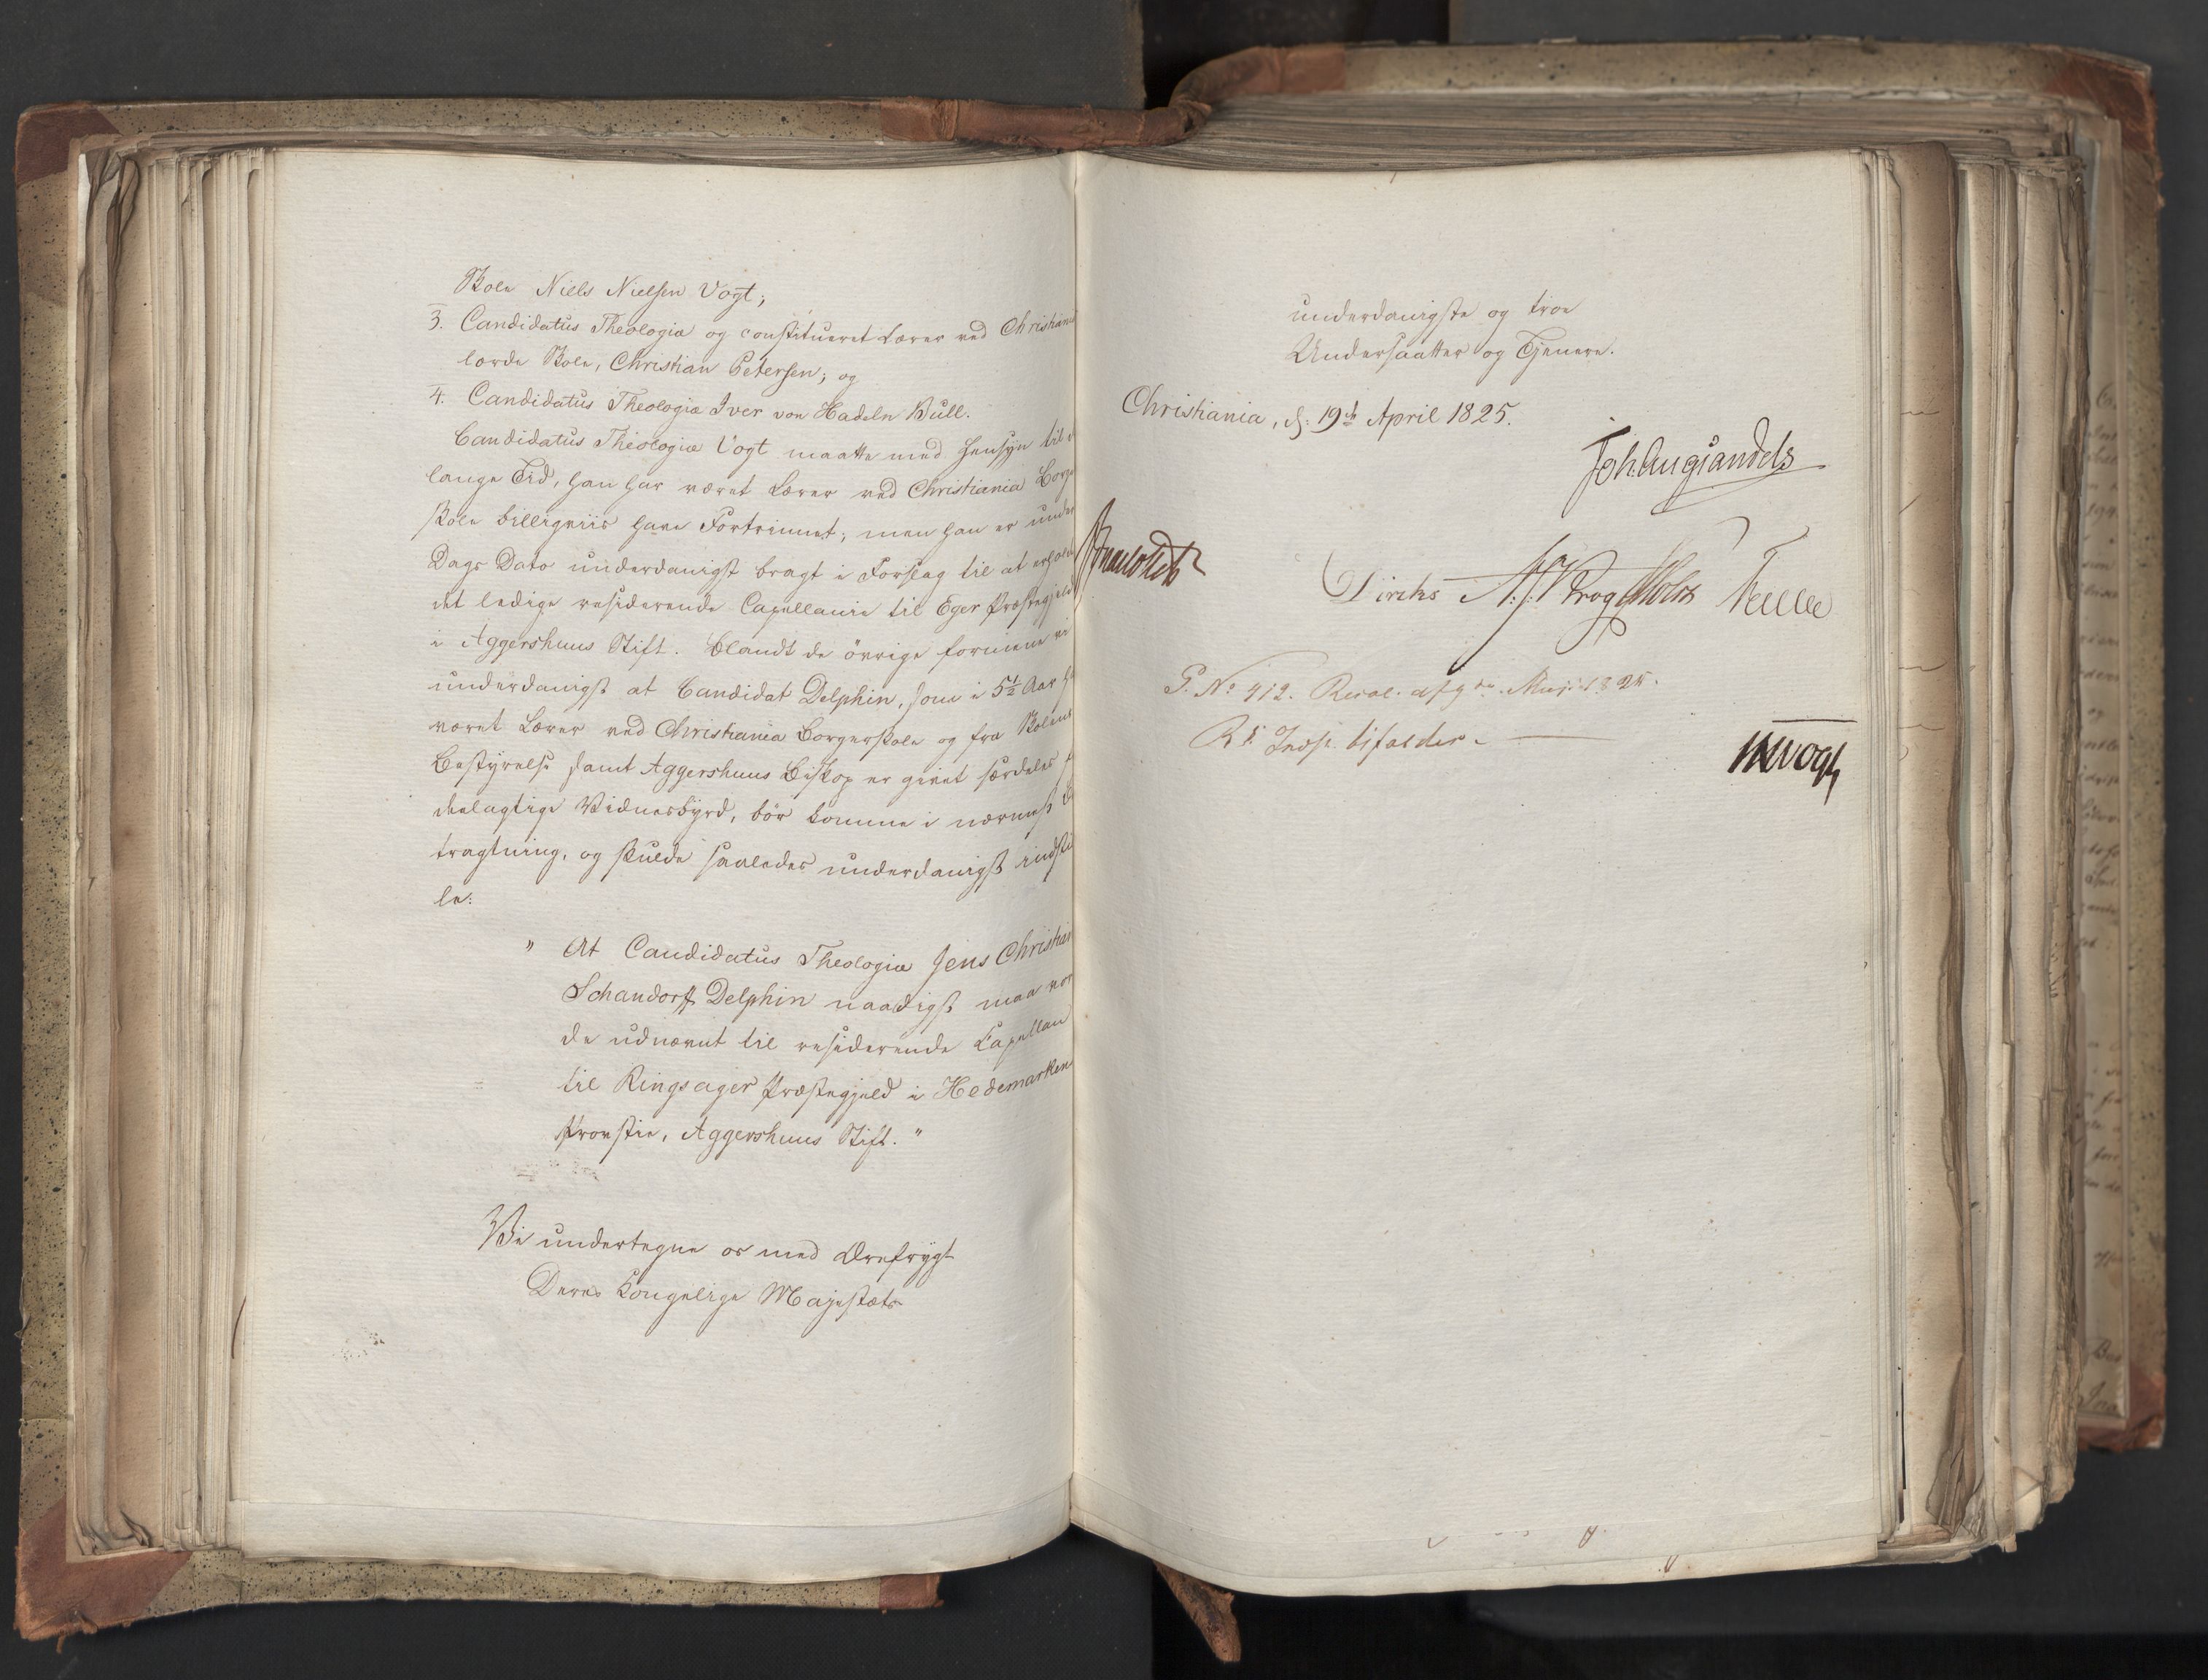 Skole Niels Nielsen Vogt;
3. Candidatus Theologiæ og constitueret Lærer ved Christiania
lærde Skole, Christian Petersen; og
4. Candidatus Theologiæ Iver von Hadeln Bull.
Candidatus Theologiæ Vogt maatte med Hensyn til
lange Tid, han har været Lærer ved Christiania Borger
skole billigviis have Fortrinnet; men han er under
Dags Dato underdanigst bragt i Forslag til at erholde
det ledige residerende Capellanie til Eger Præstegjeld
i Aggershuus Stift. Blandt de övrige formene vi
underdanigst at Candidat Delphin, som i 5½ Aar
været Lærer ved Christiania Borgerskole og fra Skolens
Bestyrelse samt Aggershuus Biskop er givet særdeles
deelagtige Vidnesbyrd, bör komme i nærmest Be
tragtning, og skulde saaledes underdanigst indstil
le:
" At Candidatus Theologiæ Jens Christian
Schandorff Delphin naadigst maa vor
de udnævnt til residerende Capellan
til Ringsager Præstegjeld i Hedemarken
Provstie, Aggershuus Stift. "
Vi undertegne os med Ærefrygt
Deres Kongelige Majestæts
underdanigste og troe
Undersaatter og Tjenere.
Christiania, d: 19de April 1825.
Joh: Aug: Sandels
Diriks Krog Holst
P. No 412. Resol. af 9de Maji 1825.
Rs Indst. bifaldes.
Vogt